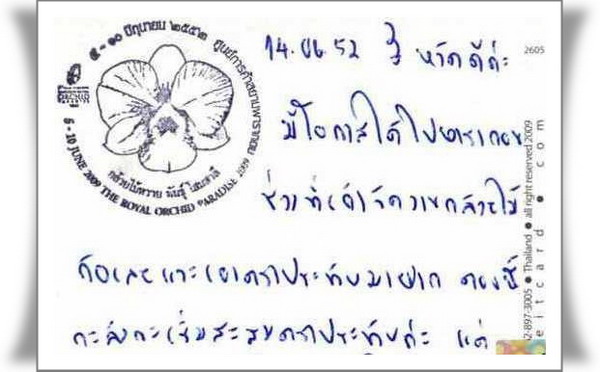 ๕ - ๑๐ มิถุนายน ๒๕๕๒ ศูนย์การค้าสยามพารากอน
กล้วยไม้หวาย พันธุ์
5 - 10 JUNE 2009 THE ROYAL ORCHID PARADISE 2009
14.06.52 หวัดดีค่ะ
มีโอกาสได้ไปพารากอน
ช่วงที่เค้าจัดงานกล้วยไม้
ก็อเลยแวะเอาตราประทับมาฝาก ตอนนี้
กะลังกะเริ่มสะสมตราประทับค่ะ แต่
2605
2-897-3005 ● Thailand ● all right reserved 2009
eitcard.com